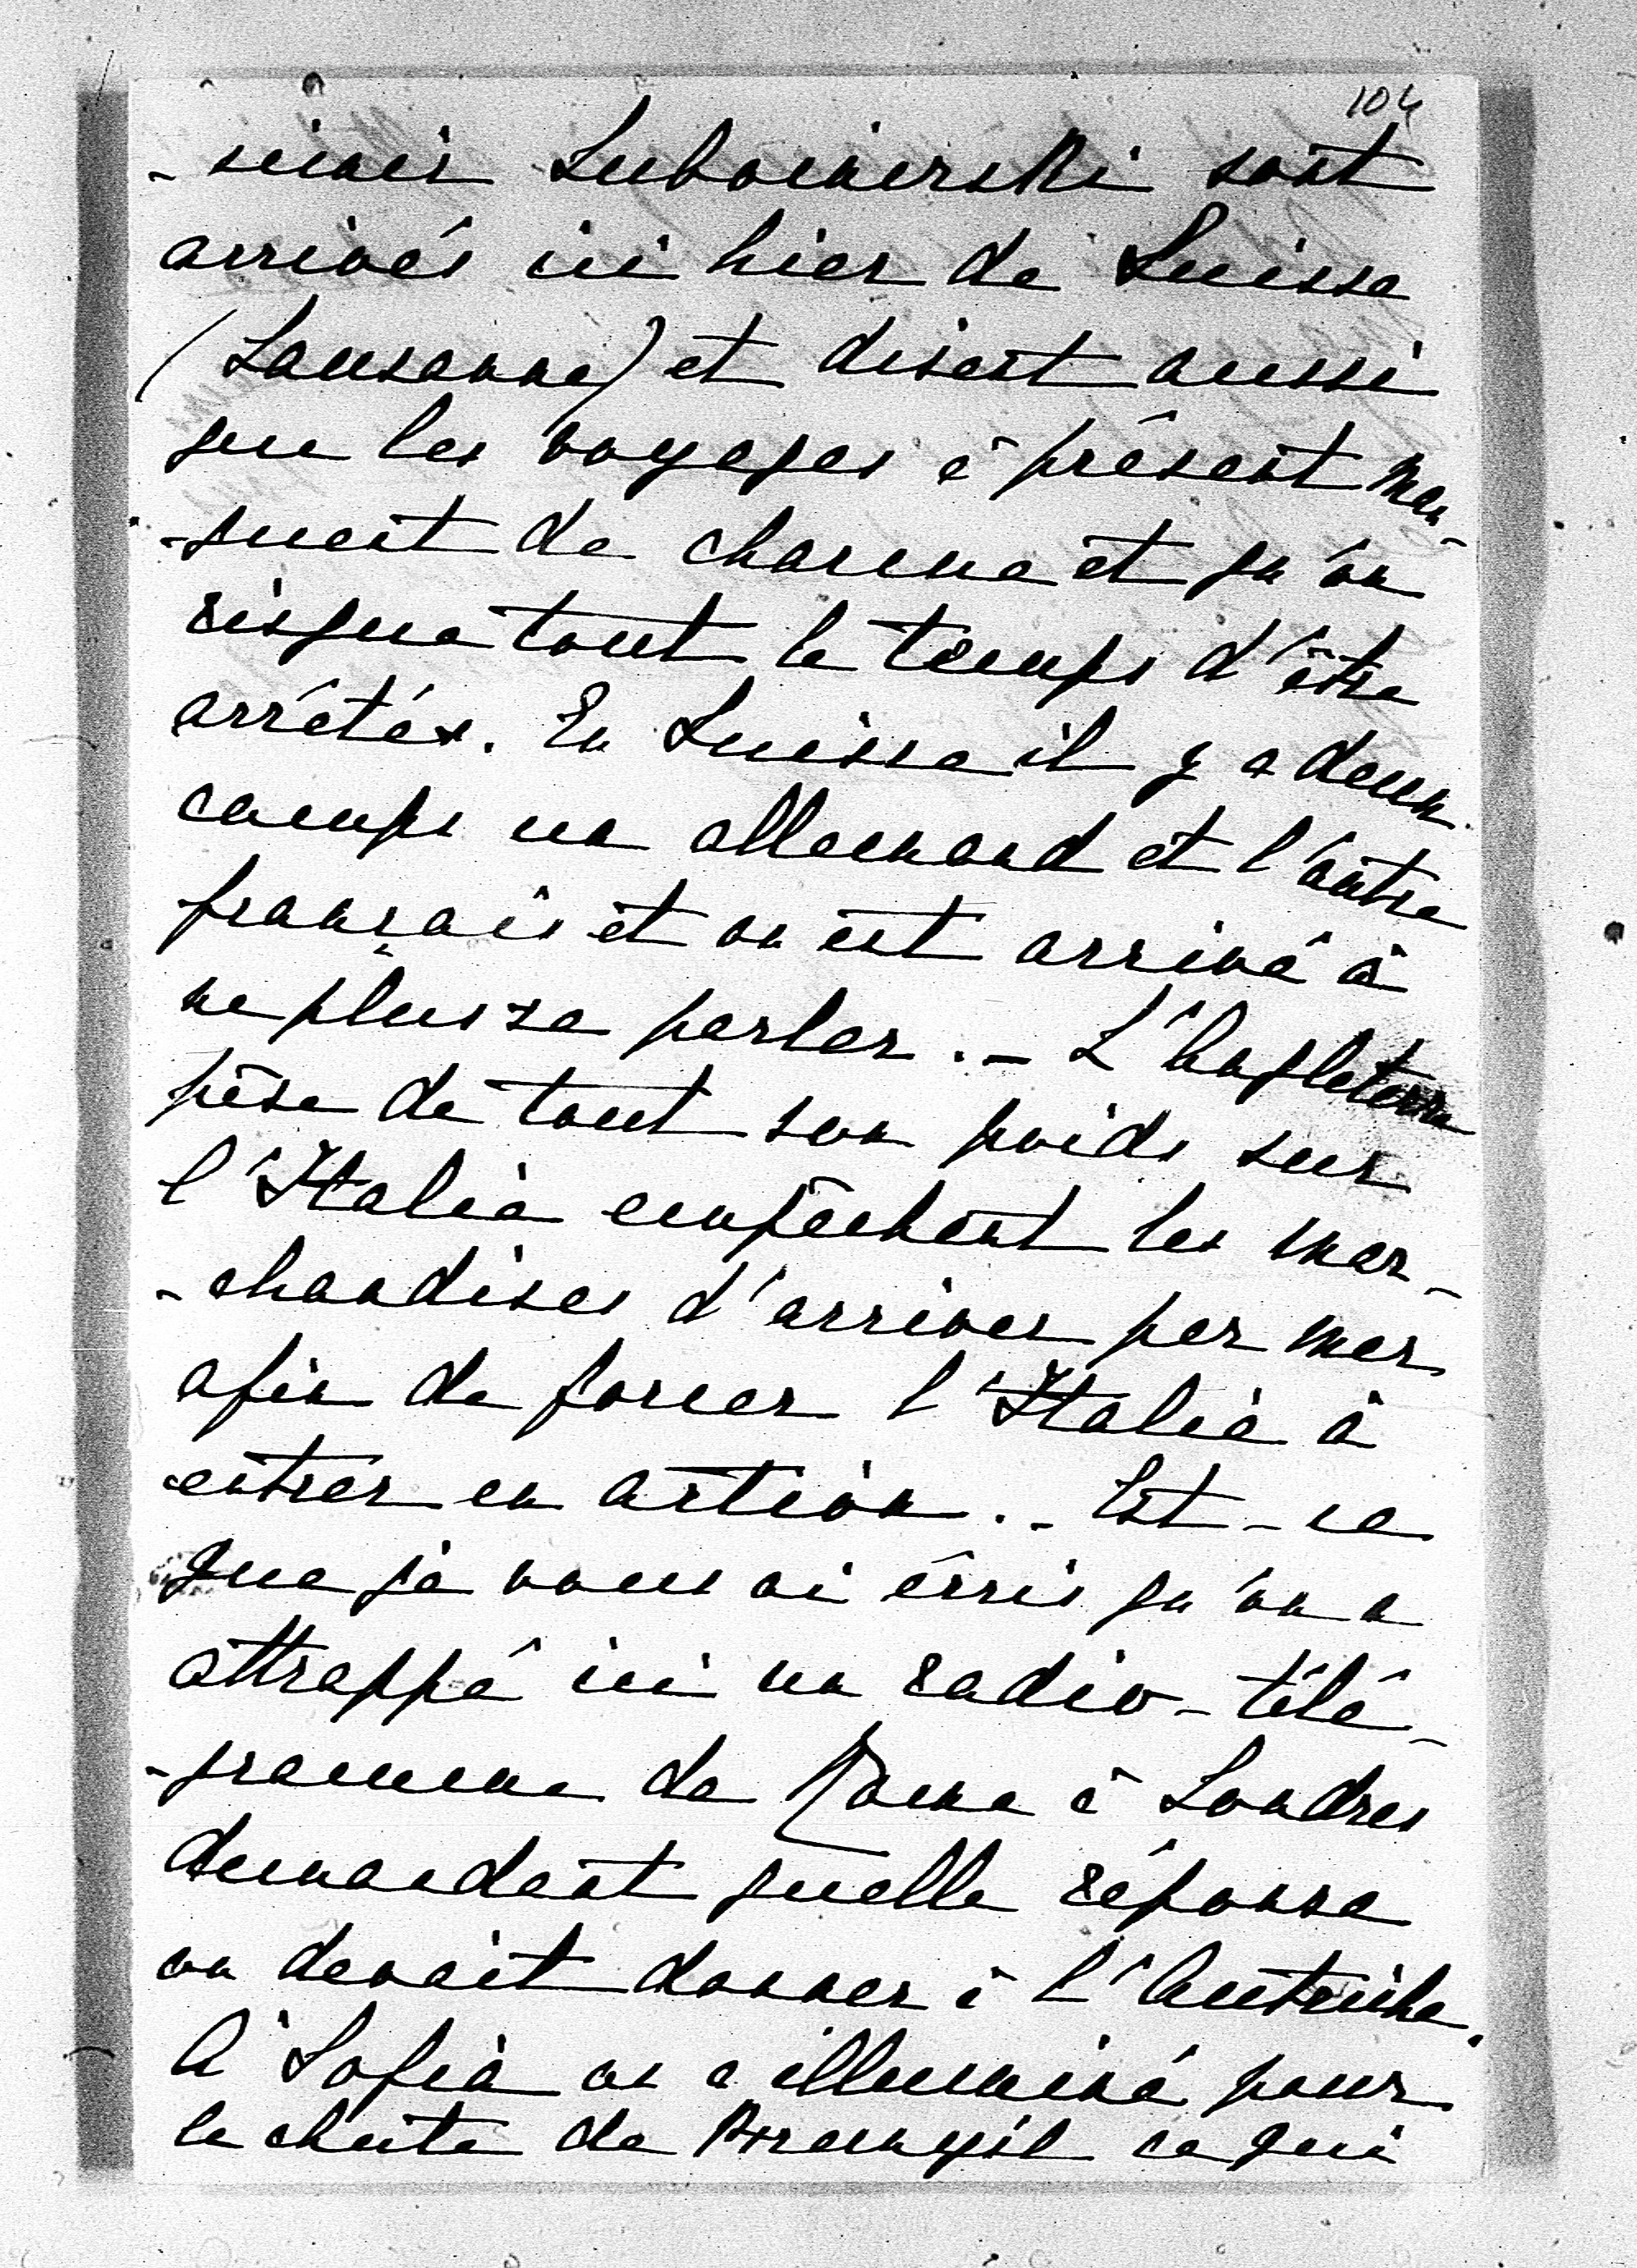 104
-simir Lubomirski sont
arrivés ici hier de Suisse
(Lausanne) et disent aussi
que les voyages à présent man-
-quent de charme et qu'on
risque tout le temps d'être
arrêtés. En Suisse il y a deux
camps un allemand et l'autre
français et on est arrivé à
ne plus se parler. - L'Angleterre
pèse de tout son poids sur
l'Italie empêchant les mar-
-chandises d'arriver par mer
afin de forcer l'Italie à
entrer en action. - Est-ce
que je vous ai écris qu'on a
attrappé ici un radio-télé-
-gramme de Rome à Londres
demandant quelle réponse
on devait donner à l'Autriche.
A Sofia on a illuminé pour
la chute de Przemysl ce qui